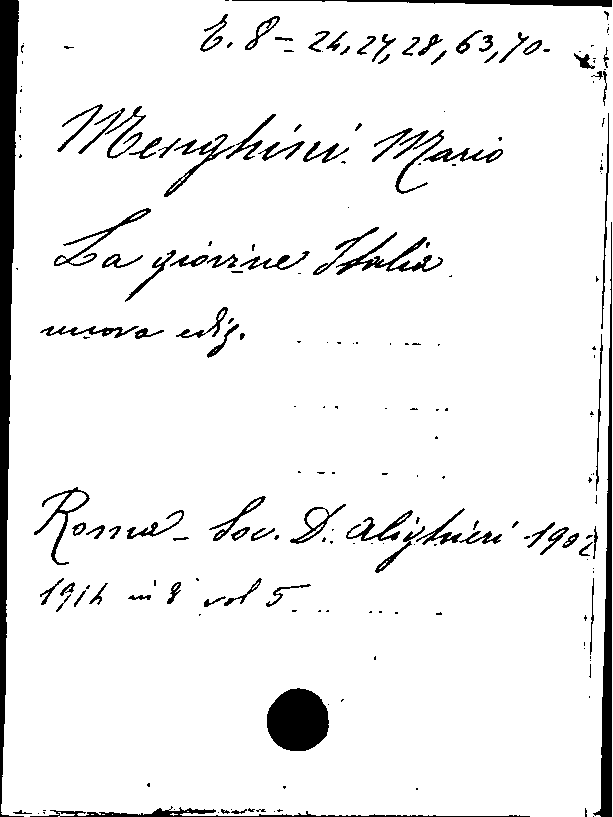 E. 8 = 24, 27, 28, 63, 70.
Menghini Mario
La giovine Italia
nuova ediz.
Roma - Soc. D. Alighieri 1902
1914 in 8° vol 5